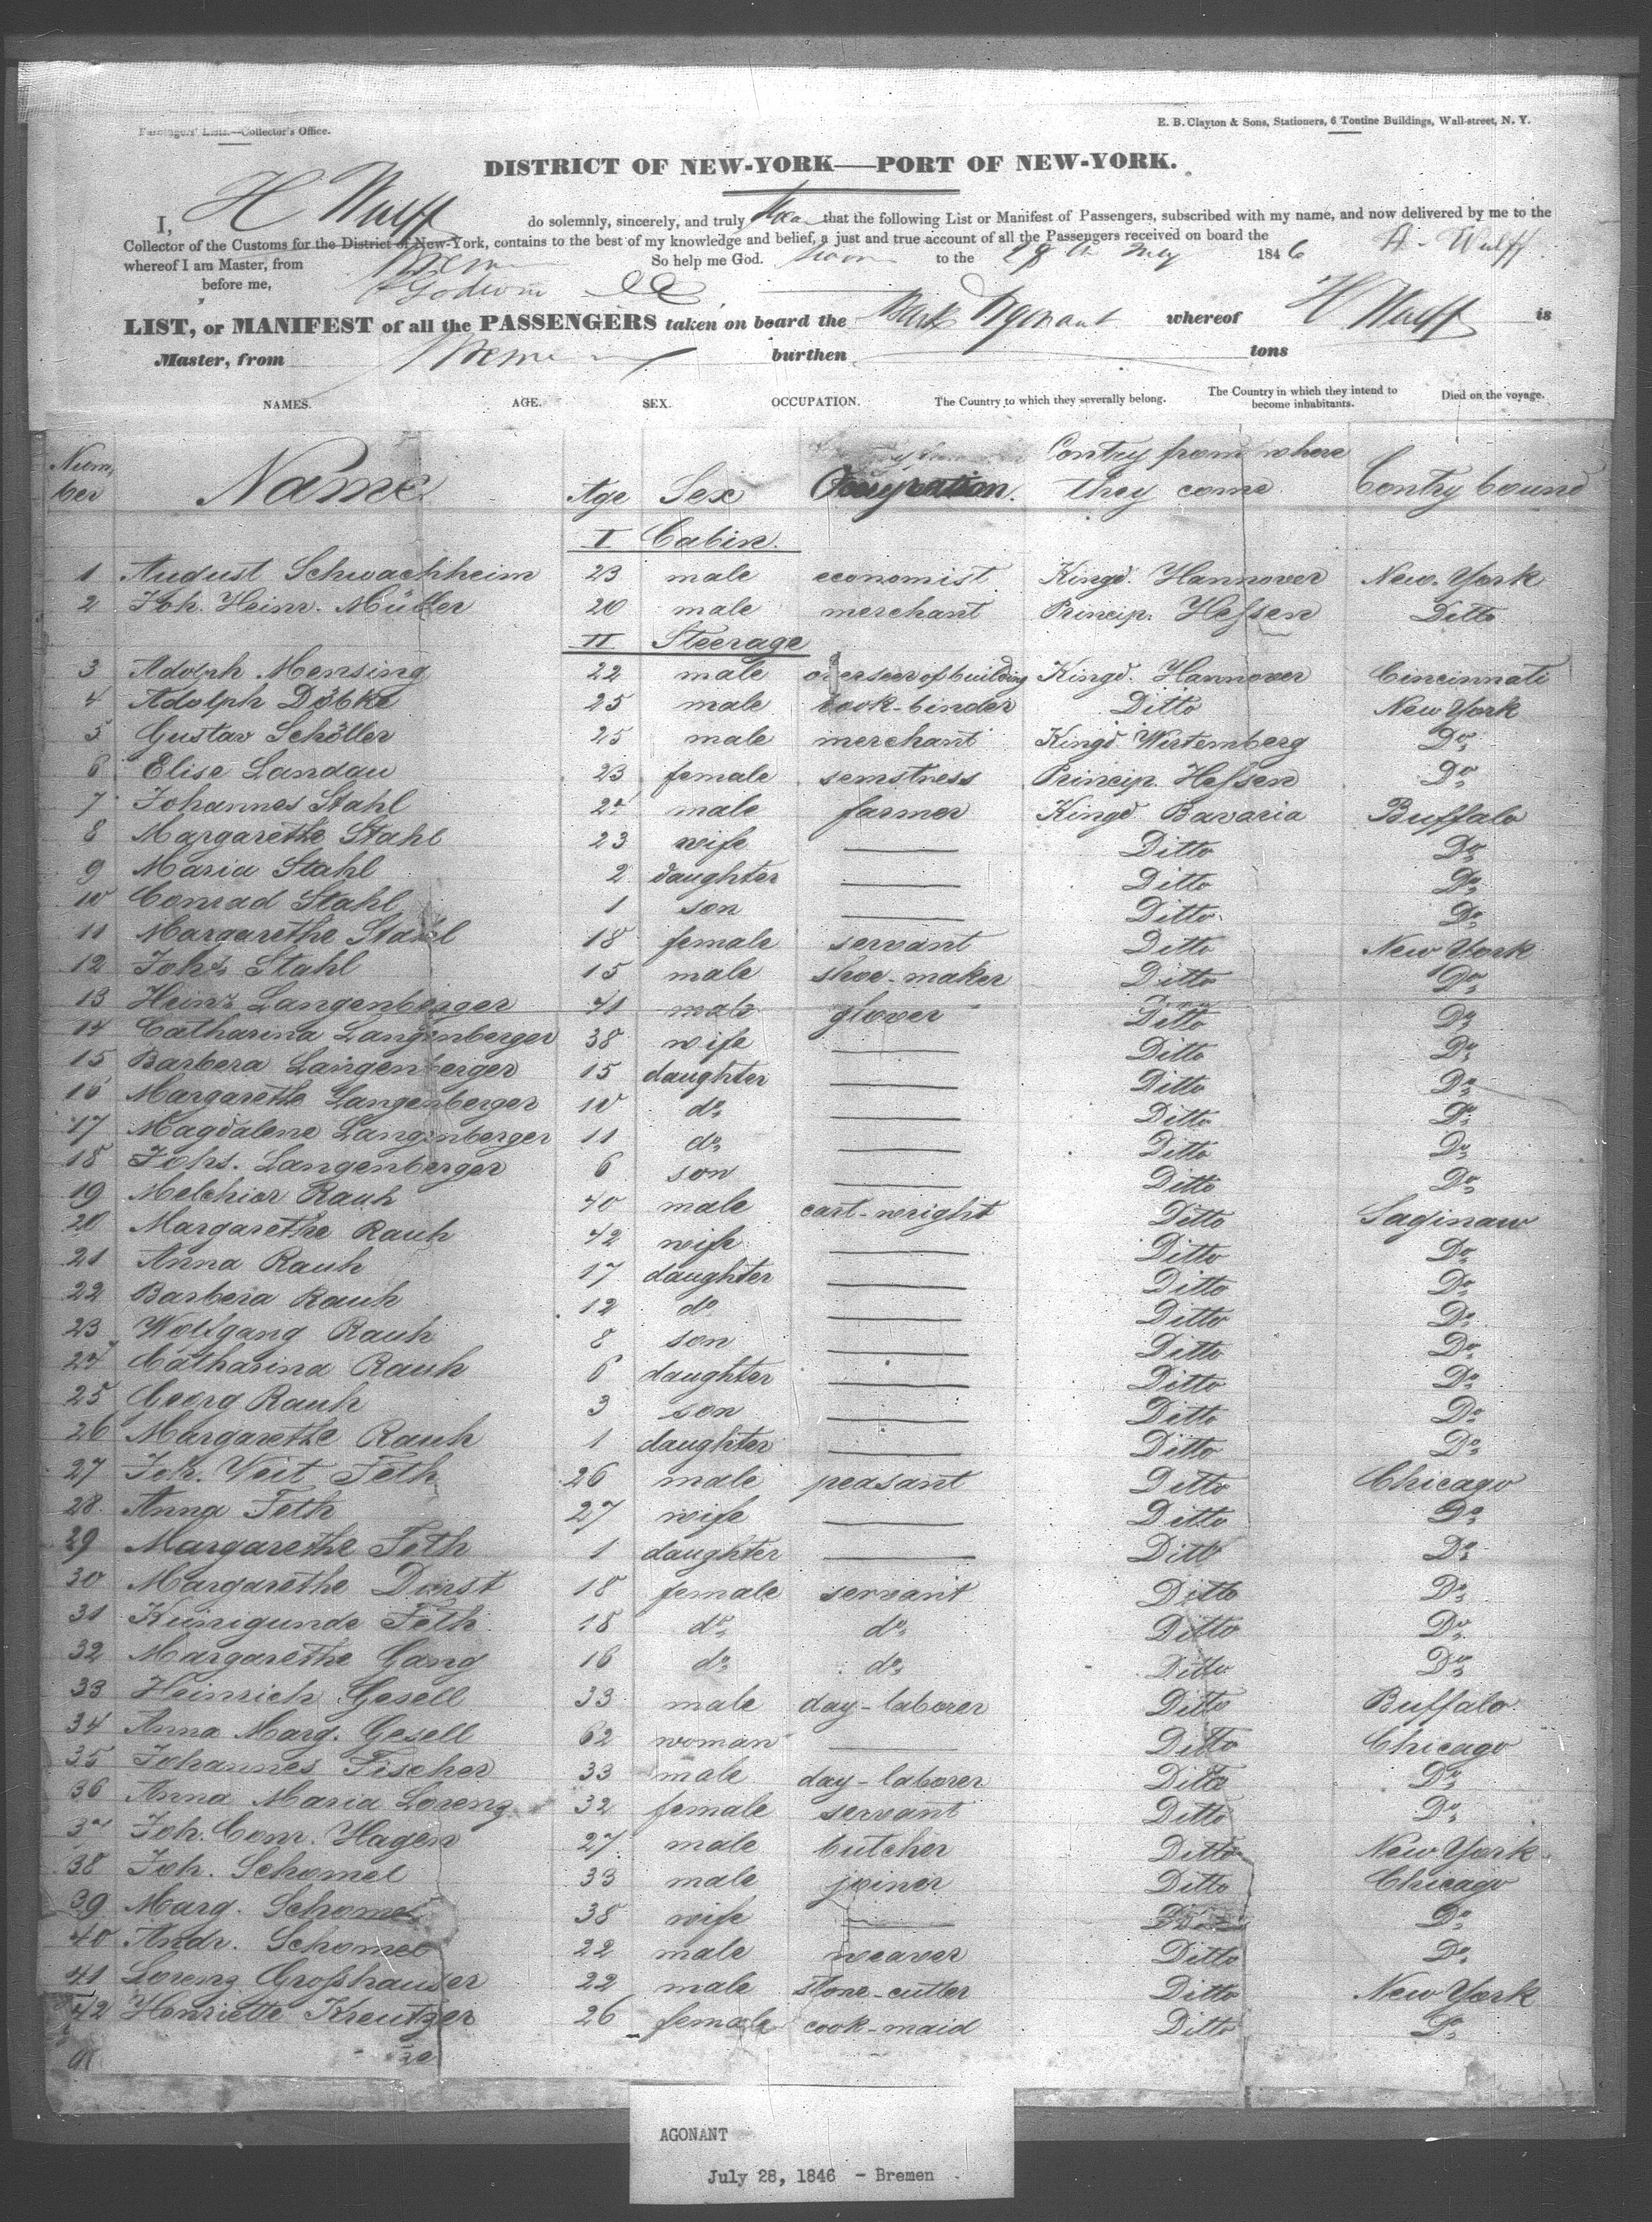 Passengers' Lists.—Collector's Office.
E. B. Clayton & Sons, Stationers, 6 Tontine Buildings, Wall-street, N. Y.
DISTRICT OF NEW-YORK—PORT OF NEW-YORK.
I, H Wulff do solemnly, sincerely, and truly that the following List or Manifest of Passengers, subscribed with my name, and now delivered by me to the
Collector of the Customs for the District of New-York, contains to the best of my knowledge and belief, a just and true account of all the Passengers received on board the
whereof I am Master, from Bremen So help me God. to the 28th July 1846 H. Wulff
before me,
LIST, or MANIFEST of all the PASSENGERS taken on board the Bark Agonant whereof H Wulff is
Master, from Bremen burthen tons
NAMES. AGE. SEX. OCCUPATION. The Country to which they severally belong. The Country in which they intend to become inhabitants. Died on the voyage.
Number Name Age Sex Occupation. Contry from where they come Contry bound
I Cabin.
1 August Schwachheim 23 male economist Kingd. Hannover New-York
2 Joh. Heinr. Müller 20 male merchant Princip. Hessen Ditto
II Steerage
3 Adolph Mensing 22 male overseer of building Kingd. Hannover Cincinnati
4 Adolph Döbke 25 male book-binder Ditto New York
5 Gustav Schöller 25 male merchant Kingd Wirtemberg Do
6 Elise Landau 23 female semstress Princip. Hessen Do
7 Johannes Stahl male farmer Kingd Bavaria Buffalo
8 Margarethe Stahl 23 wife — Ditto Do
9 Maria Stahl 2 daughter — Ditto Do
10 Conrad Stahl 1 son — Ditto Do
11 Margarethe Stahl 18 female servant Ditto New York
12 Johs Stahl 15 male shoe-maker Ditto Do
13 Heinr Langenberger 41 male glover Ditto Do
14 Catharina Langenberger 38 wife — Ditto Do
15 Barbera Langenberger 15 daughter — Ditto Do
16 Margarethe Langenberger 10 do — Ditto Do
17 Magdalene Langenberger 11 do — Ditto Do
18 Johs. Langenberger 6 son — Ditto Do
19 Melchior Rauh 40 male cart-wright Ditto Saginaw
20 Margarethe Rauh 42 wife — Ditto Do
21 Anna Rauh 17 daughter — Ditto Do
22 Barbera Rauh 12 do — Ditto Do
23 Wolfgang Rauh 8 son — Ditto Do
24 Catharina Rauh 6 daughter — Ditto Do
25 Georg Rauh 3 son — Ditto Do
26 Margarethe Rauh 1 daughter — Ditto Do
27 Joh. Veit Feth 26 male peasant Ditto Chicago
28 Anna Feth 27 wife — Ditto Do
29 Margarethe Feth 1 daughter — Ditto Do
30 Margarethe Dorst 18 female servant Ditto Do
31 Kunigunde Feth 18 do do Ditto Do
32 Margarethe Gang 16 do do Ditto Do
33 Heinrich Gesell 33 male day-laborer Ditto Buffalo
34 Anna Marg. Gesell 62 woman — Ditto Chicago
35 Johannes Fischer 33 male day-laborer Ditto Do
36 Anna Maria Lorenz 32 female servant Ditto Do
37 Joh. Conr. Hagen 27 male butcher Ditto New York
38 Joh. Schomel 33 male joiner Ditto Chicago
39 Marg. Schomel 38 wife — Ditto Do
40 Andr. Schomel 22 male weaver Ditto Do
41 Lorenz Großhauser 22 male stone-cutter Ditto New York
42 Henriette Kreutzer 26 female cook-maid Ditto Do
AGONANT
July 28, 1846 - Bremen